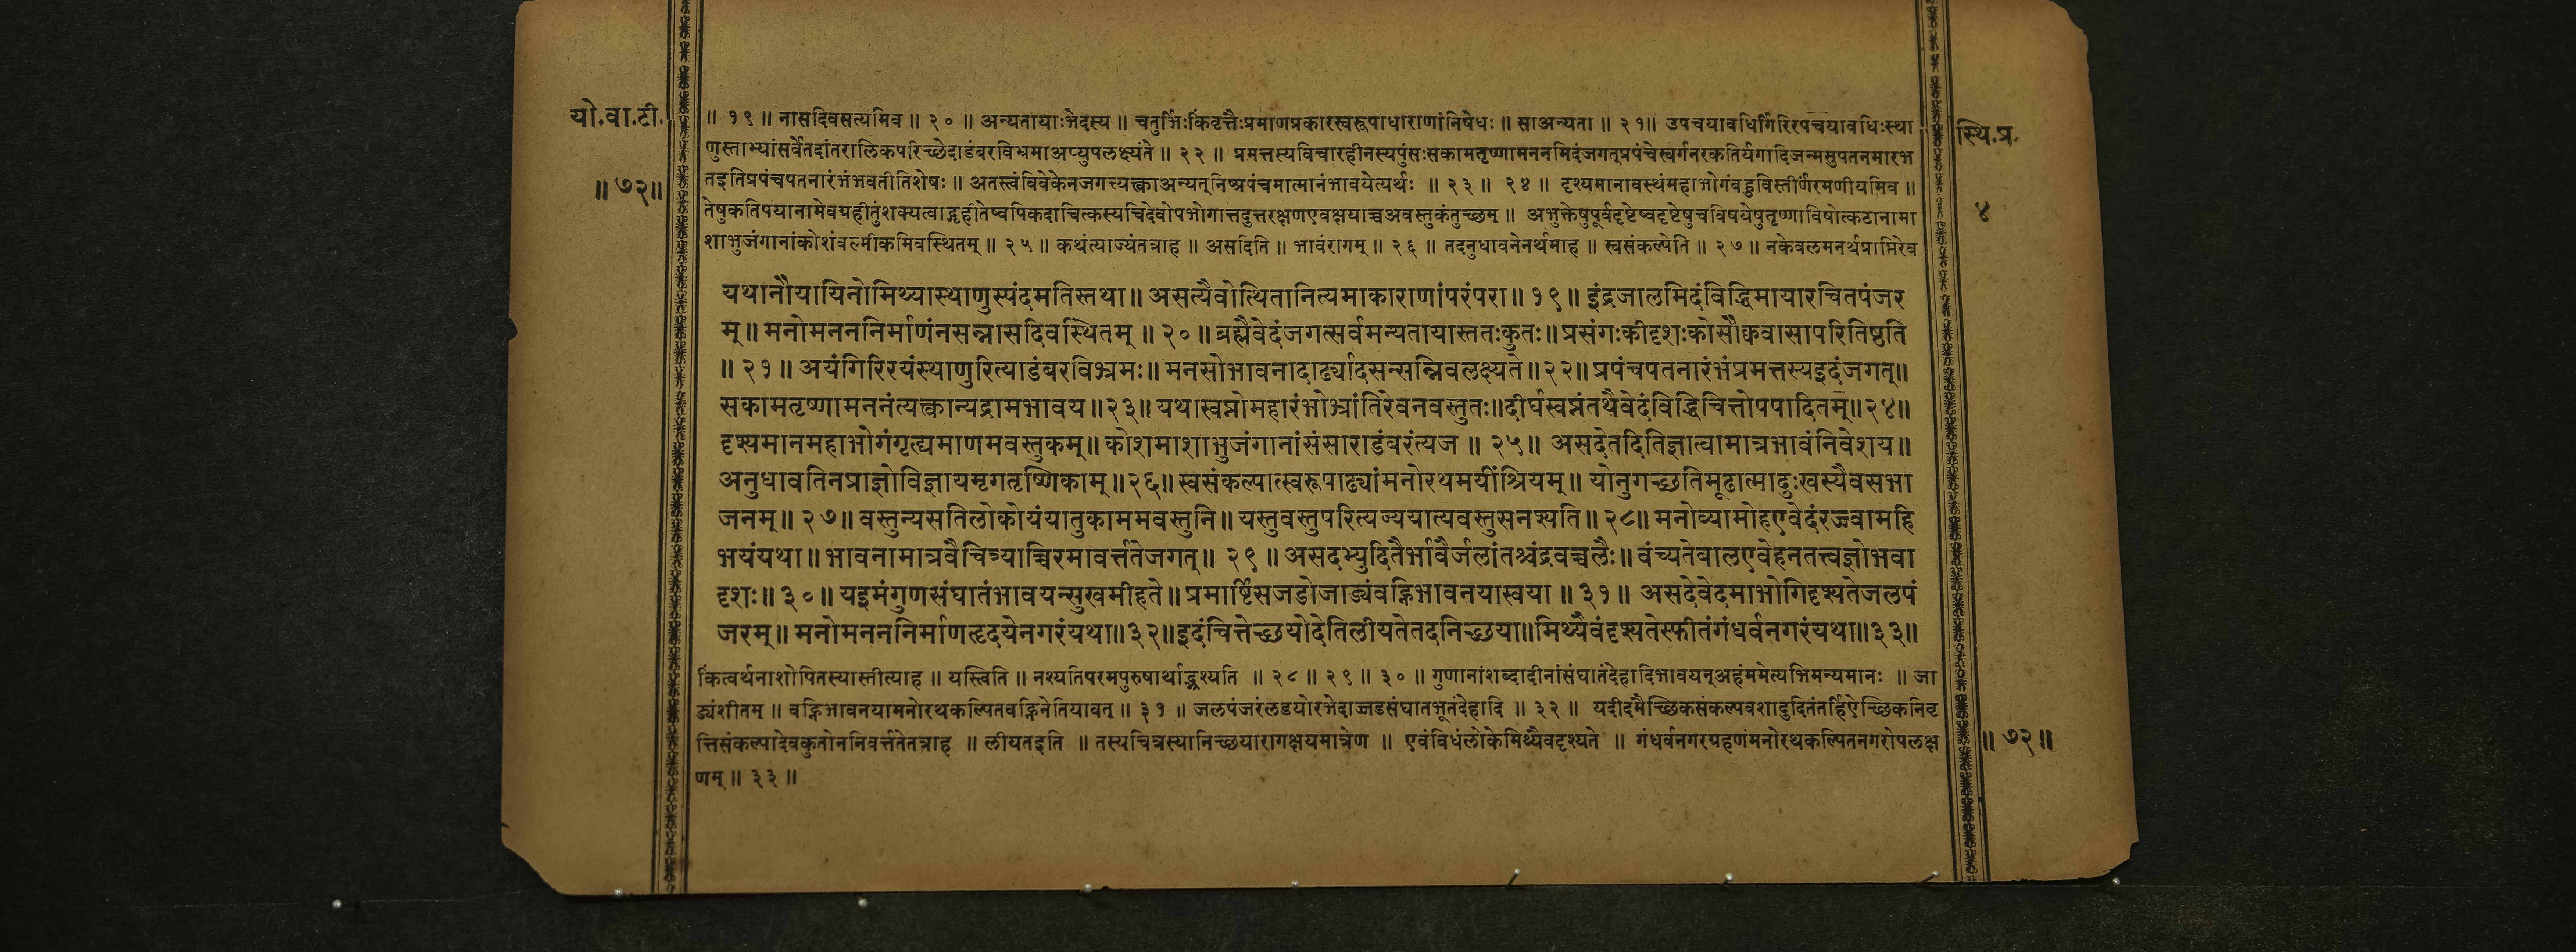 यो.वा.टी.
॥ ७२॥
॥ १९ ॥ नासदिवसत्यमिव ॥ २० ॥ अन्यतायाःभेदस्य ॥ चतुर्भिःकिंवृत्तैःप्रमाणप्रकारस्वरूपाधाराणांनिषेधः ॥ साअन्यता ॥ २१॥ उपचयावधिर्गिरिरपचयावधिःस्था
णुस्ताभ्यांसर्वेतदांतरालिकपरिच्छेदाडंबरविभ्रमाअप्युपलक्ष्यंते ॥ २२ ॥ प्रमत्तस्यविचारहीनस्यपुंसःसकामतृष्णामननमिदंजगत्प्रपंचेस्वर्गनरकतिर्यगादिजन्मसुपतनमारभ
तइतिप्रपंचपतनारंभंभवतीतिशेषः ॥ अतस्त्वंविवेकेनजगत्त्यक्त्वाअन्यत्निष्प्रपंचमात्मानंभावयेत्यर्थः ॥ २३ ॥ २४ ॥ दृश्यमानावस्थंमहाभोगंबहुविस्तीर्णरमणीयमिव ॥
तेषुकतिपयानामेवग्रहीतुंशक्यत्वाद्गृहीतेष्वपिकदाचित्कस्यचिदेवोपभोगात्तदुत्तरक्षणएवक्षयाच्चअवस्तुकंतुच्छम् ॥ अभुक्तेषुपूर्वदृष्टेष्वदृष्टेषुचविषयेषुतृष्णाविषोत्कटानामा
शाभुजंगानांकोशंवल्मीकमिवस्थितम् ॥ २५ ॥ कथंत्याज्यंतत्राह ॥ असदिति ॥ भावंरागम् ॥ २६ ॥ तदनुधावनेनर्थमाह ॥ स्वसंकल्पेति ॥ २७ ॥ नकेवलमनर्थप्राप्तिरेव
यथानौयायिनोमिथ्यास्थाणुस्पंदमतिस्तथा॥ असत्यैवोत्थितानित्यमाकाराणांपरंपरा॥ १९॥ इंद्रजालमिदंविद्धिमायारचितपंजर
म्॥ मनोमनननिर्माणंनसन्नासदिवस्थितम् ॥ २०॥ ब्रह्मैवेदंजगत्सर्वमन्यतायास्ततःकुतः॥ प्रसंगःकीदृशःकोसौक्ववासापरितिष्ठति
॥ २१॥ अयंगिरिरयंस्थाणुरित्याडंबरविभ्रमः॥ मनसोभावनादार्ढ्यादसन्सन्निवलक्ष्यते॥२२॥ प्रपंचपतनारंभंप्रमत्तस्यइदंजगत्॥
सकामतृष्णामननंत्यक्त्वान्यद्रामभावय॥२३॥ यथास्वप्नोमहारंभोभ्रांतिरेवनवस्तुतः॥दीर्घस्वप्नंतथैवेदंविद्धिचित्तोपपादितम्॥२४॥
दृश्यमानमहाभोगंगृह्यमाणमवस्तुकम्॥ कोशमाशाभुजंगानांसंसाराडंबरंत्यज ॥ २५॥ असदेतदितिज्ञात्वामात्रभावंनिवेशय॥
अनुधावतिनप्राज्ञोविज्ञायमृगतृष्णिकाम्॥२६॥ स्वसंकल्पात्स्वरूपाढ्यांमनोरथमयींश्रियम्॥ योनुगच्छतिमूढात्मादुःखस्यैवसभा
जनम्॥ २७॥ वस्तुन्यसतिलोकोयंयातुकाममवस्तुनि॥ यस्तुवस्तुपरित्यज्ययात्यवस्तुसनश्यति॥२८॥ मनोव्यामोहएवेदंरज्ज्वामहि
भयंयथा॥ भावनामात्रवैचित्र्याच्चिरमावर्त्ततेजगत्॥ २९॥ असदभ्युदितैर्भावैर्जलांतश्चंद्रवच्चलैः॥ वंच्यतेबालएवेहनतत्त्वज्ञोभवा
दृशः॥ ३०॥ यइमंगुणसंघातंभावयन्सुखमीहते॥ प्रमार्ष्टिसजडोजाड्यंवह्निभावनयास्वया ॥ ३१॥ असदेवेदमाभोगिदृश्यतेजलपं
जरम्॥ मनोमनननिर्माणहृदयेनगरंयथा॥३२॥इदंचित्तेच्छयोदेतिलीयतेतदनिच्छया॥मिथ्यैवंदृश्यतेस्फीतंगंधर्वनगरंयथा॥३३॥
किंत्वर्थनाशोपितस्यास्तीत्याह ॥ यस्त्विति ॥ नश्यतिपरमपुरुषार्थाद्भ्रश्यति ॥ २८ ॥ २९ ॥ ३० ॥ गुणानांशब्दादीनांसंघातंदेहादिभावयन्अहंममेत्यभिमन्यमानः ॥ जा
ड्यंशीतम् ॥ वह्निभावनयामनोरथकल्पितवह्निनेतियावत् ॥ ३१ ॥ जलपंजरंलडयोरभेदाज्जडसंघातभूतंदेहादि ॥ ३२ ॥ यदीदमैच्छिकसंकल्पवशादुदितंतर्हिऐच्छिकनिवृ
त्तिसंकल्पादेवकुतोननिवर्त्ततेतत्राह ॥ लीयतइति ॥ तस्यचित्रस्यानिच्छयारागक्षयमात्रेण ॥ एवंविधंलोकेमिथ्यैवदृश्यते ॥ गंधर्वनगरग्रहणंमनोरथकल्पितनगरोपलक्ष
णम् ॥ ३३ ॥
स्थि.प्र.
४
॥ ७२॥